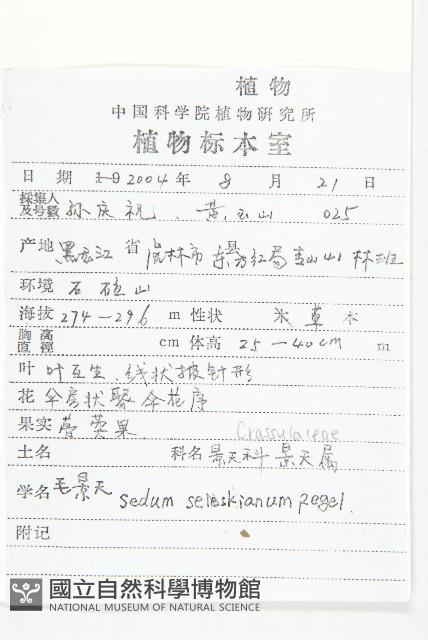 植物
中国科学院植物研究所
植物标本室
日期 19 2004年 8 月 21 日
採集人及号数 孙庆祝 . 黄玉山 025
产地 黑龙江 省 虎林市 县 东方红局 青山 林班
环境 石砬山
海拔 274—296 m 性状 草本
胸高直徑 cm 体高 25—40cm m
叶 叶互生.线状披针形
花 伞房状聚伞花序
果实 蓇葖果 Crassulaceae
土名 科名 景天科 景天属
学名 毛景天 Sedum seleskianum Regel.
附记
國立自然科學博物館
NATIONAL MUSEUM OF NATURAL SCIENCE